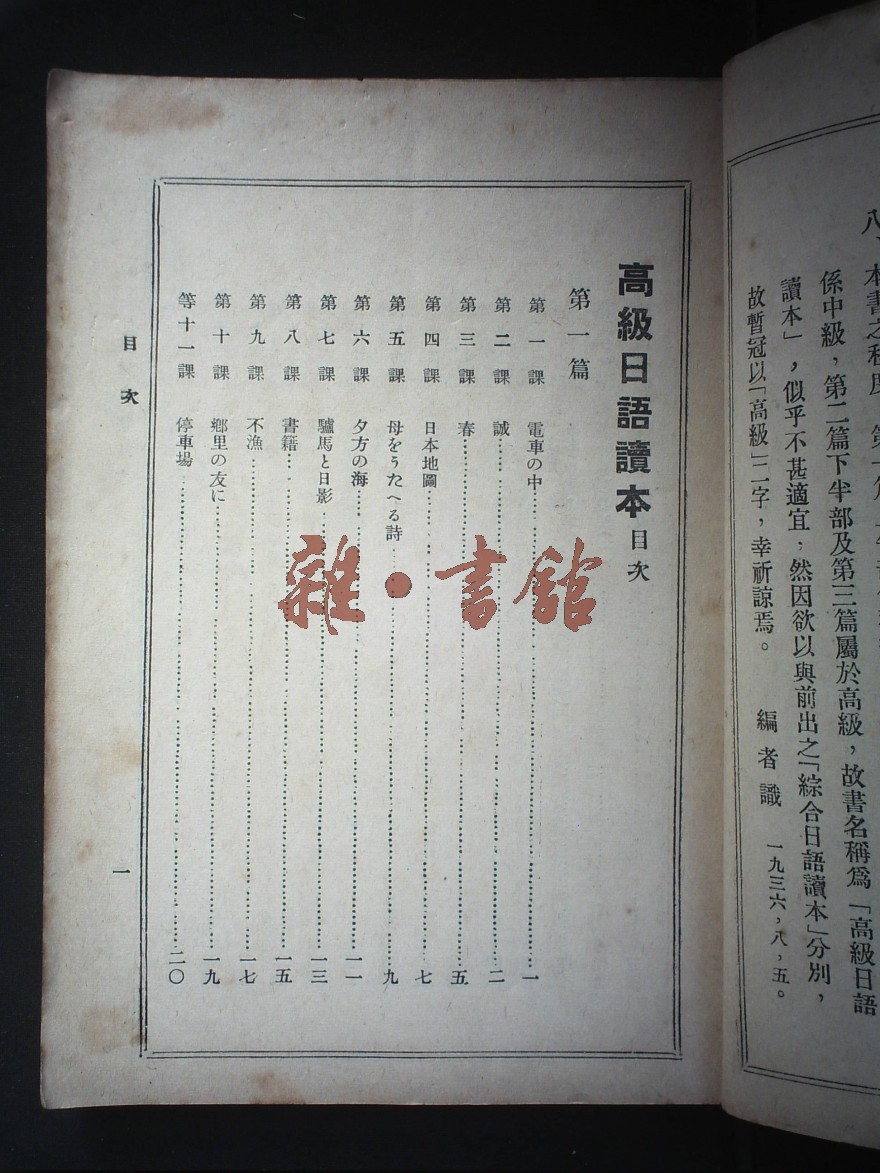 八、本書之程度，第一篇
係中級，第二篇下半部及第三篇屬於高級，故書名稱爲「高級日語
讀本」，似乎不甚適宜；然因欲以與前出之「綜合日語讀本」分別，
故暫冠以「高級」二字，幸祈諒焉。　編者識　一九三六，八，五。
高級日語讀本 目次
第一篇
第一課　電車の中……一
第二課　誠……二
第三課　春……五
第四課　日本地圖……七
第五課　母をうたへる詩……九
第六課　夕方の海……一一
第七課　驢馬と日影……一三
第八課　書籍……一五
第九課　不漁……一七
第十課　鄕里の友に……一九
等十一課　停車場……二〇
目次
一
雜・書館